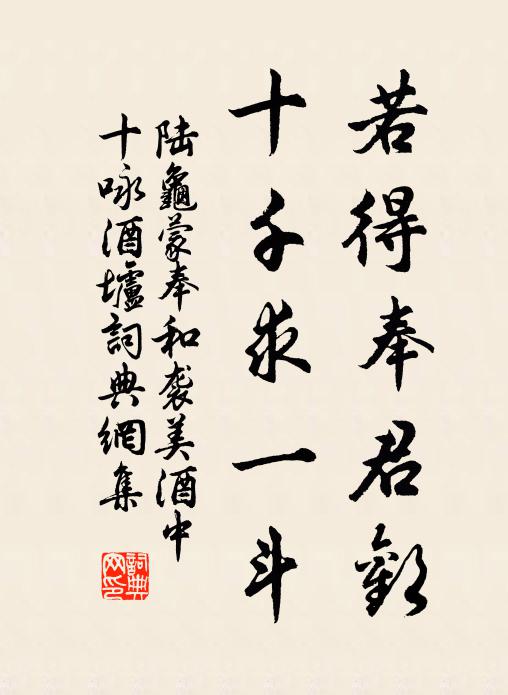 若得奉君歡
十千求一斗
陸龜蒙奉和袭美酒中
十咏酒壚詞典網集
詞典
网印